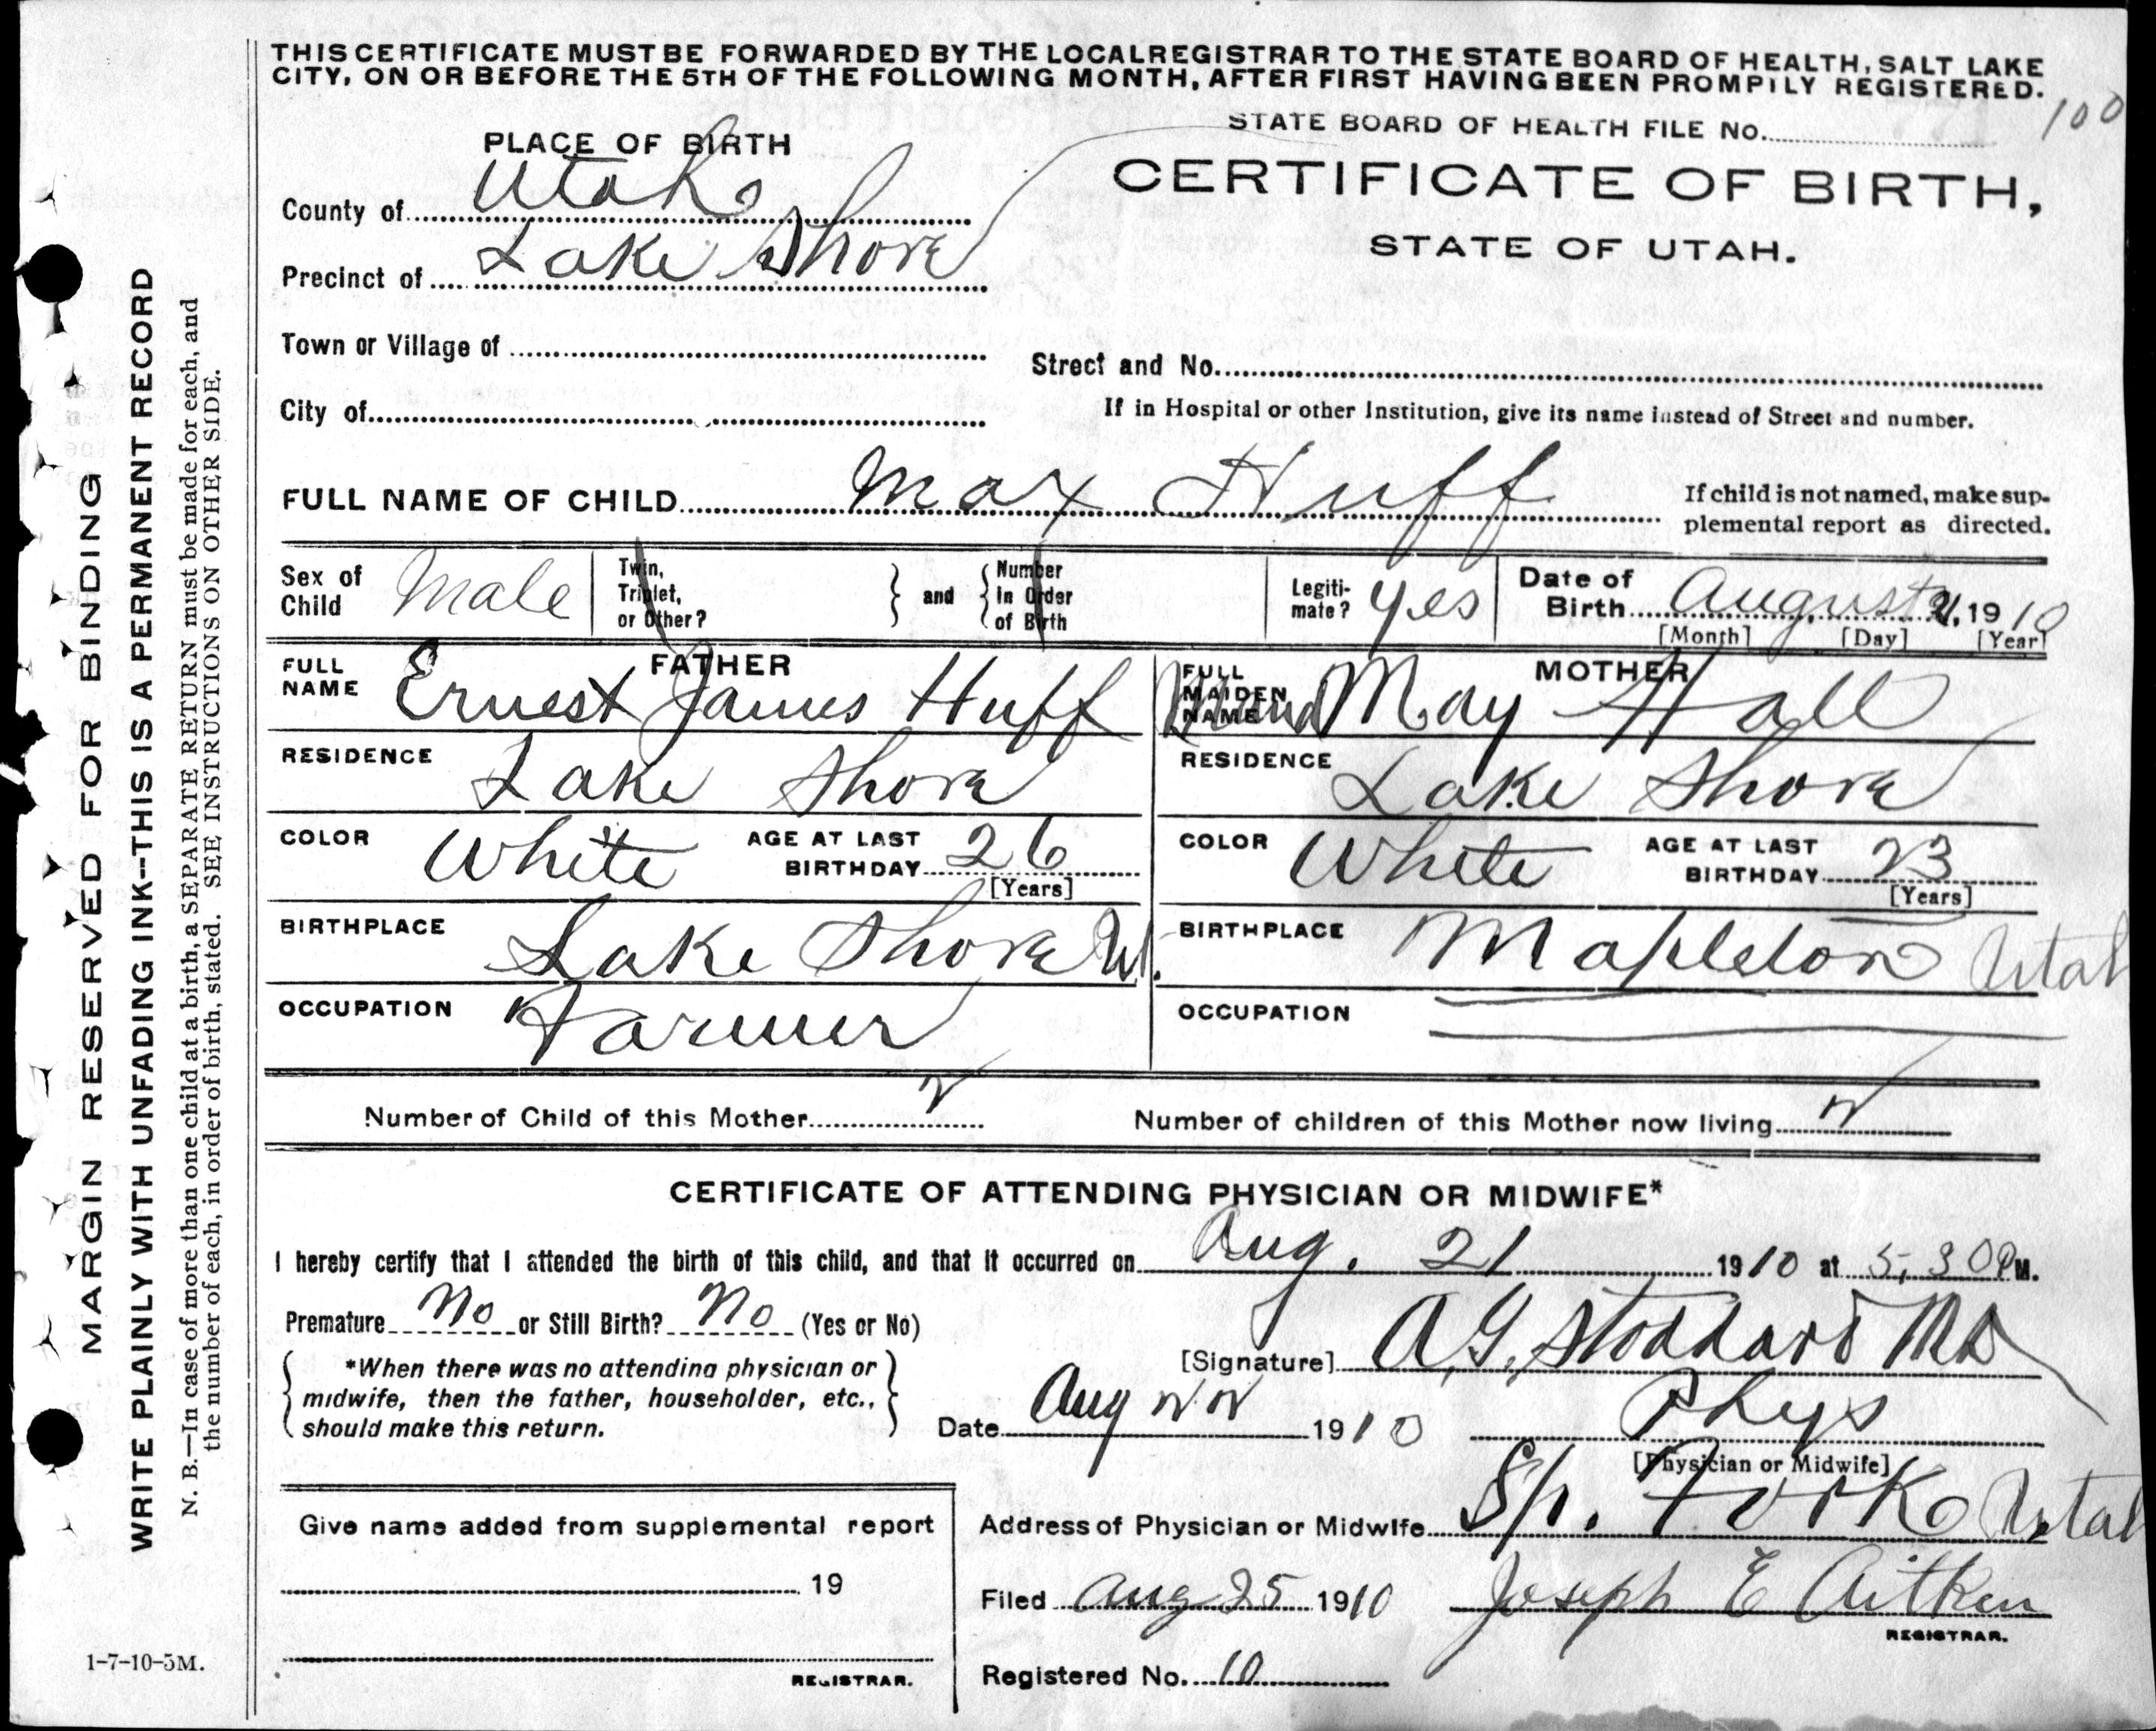 THIS CERTIFICATE MUST BE FORWARDED BY THE LOCAL REGISTRAR TO THE STATE BOARD OF HEALTH, SALT LAKE
CITY, ON OR BEFORE THE 5TH OF THE FOLLOWING MONTH, AFTER FIRST HAVING BEEN PROMPTLY REGISTERED.
STATE BOARD OF HEALTH FILE NO. 100
PLACE OF BIRTH
CERTIFICATE OF BIRTH,
STATE OF UTAH.
County of Utah
Precinct of Lake Shore
Town or Village of
Street and No.
City of
If in Hospital or other Institution, give its name instead of Street and number.
FULL NAME OF CHILD Max Huff
If child is not named, make sup-
plemental report as directed.
Sex of Child Male
Twin, Triplet, or Other? and Number In Order of Birth
Legiti-mate? yes
Date of Birth August 21, 1910
[Month] [Day] [Year]
FATHER
FULL NAME Ernest James Huff
RESIDENCE Lake Shore
COLOR White AGE AT LAST BIRTHDAY 26
[Years]
BIRTHPLACE Lake Shore Ut.
OCCUPATION Farmer
MOTHER
FULL MAIDEN NAME Maud May Hall
RESIDENCE Lake Shore
COLOR White AGE AT LAST BIRTHDAY 23
[Years]
BIRTHPLACE Mapleton Utah
OCCUPATION
Number of Child of this Mother 2 Number of children of this Mother now living 2
CERTIFICATE OF ATTENDING PHYSICIAN OR MIDWIFE*
I hereby certify that I attended the birth of this child, and that it occurred on Aug. 21 1910 at 5,30 P M.
Premature No or Still Birth? No (Yes or No)
*When there was no attending physician or
midwife, then the father, householder, etc.,
should make this return.
[Signature] A.G. Stoddard MD
Date Aug 22 1910 Phys
[Physician or Midwife]
Address of Physician or Midwife Sp. Fork Utah
Give name added from supplemental report
19
REGISTRAR.
Filed Aug 25 1910 Joseph E Aitken
REGISTRAR.
Registered No. 10
MARGIN RESERVED FOR BINDING
WRITE PLAINLY WITH UNFADING INK--THIS IS A PERMANENT RECORD
N. B.—In case of more than one child at a birth, a SEPARATE RETURN must be made for each, and
the number of each, in order of birth, stated. SEE INSTRUCTIONS ON OTHER SIDE.
1-7-10-5M.